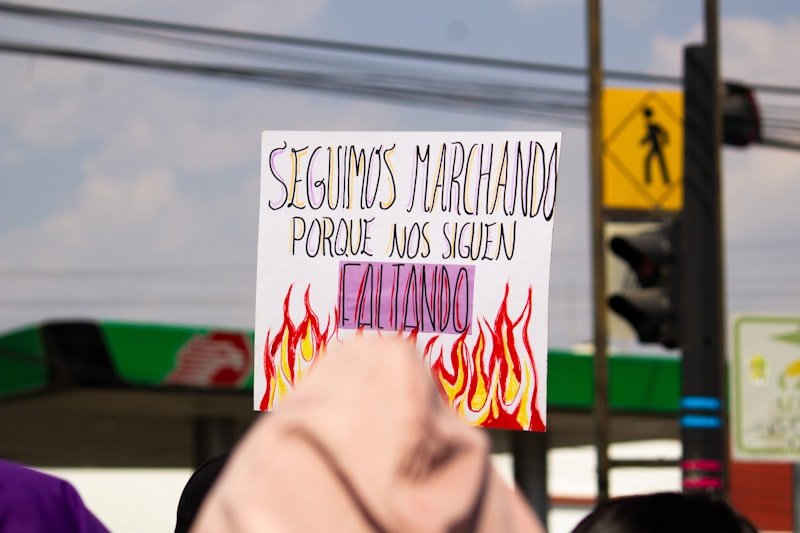 SEGUIMOS MARCHANDO
PORQUE NOS SIGUEN
FALTANDO